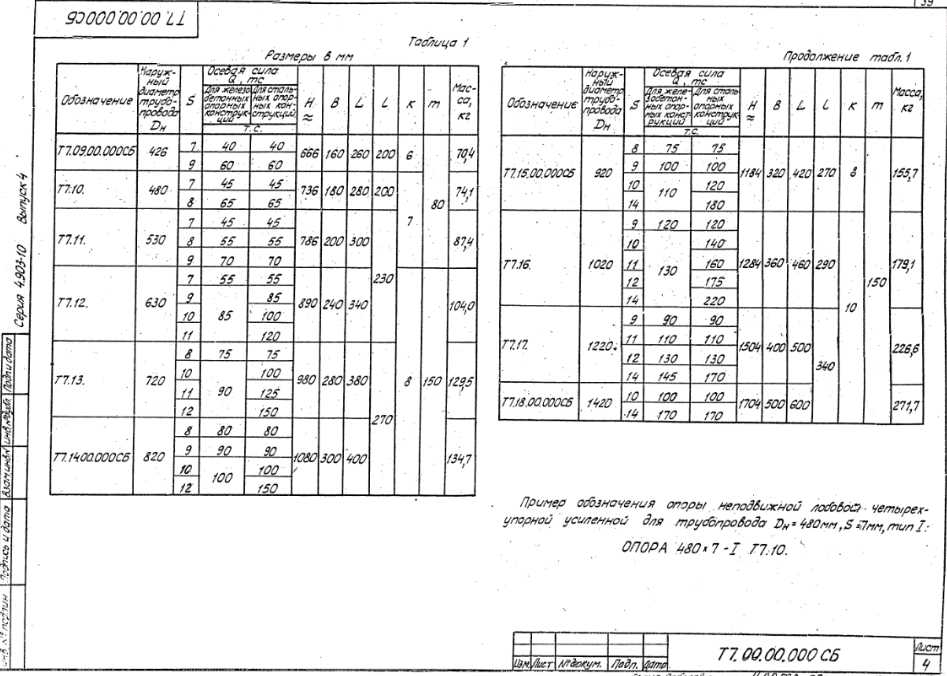 39
Т7.00.00.000СБ
Таблица 1
Размеры в мм
Обозначение | Наружный диаметр трубопровода Dн | S | Осевая сила Q, тс | H ≈ | B | L | l | к | m | Масса, кг
Для железобетонных опорных конструкций | Для стальных опорных конструкций
т.с.
Т7.09.00.000СБ | 426 | 7 | 40 | 40 | 666 | 160 | 260 | 200 | 6 | 80 | 70,4
9 | 60 | 60
Т7.10. | 480 | 7 | 45 | 45 | 736 | 180 | 280 | 200 | 7 | 74,1
8 | 65 | 65
Т7.11. | 530 | 7 | 45 | 45 | 786 | 200 | 300 | 230 | 87,4
8 | 55 | 55
9 | 70 | 70
Т7.12. | 630 | 7 | 55 | 55 | 890 | 240 | 340 | 8 | 150 | 104,0
9 | 85 | 85
10 | 100
11 | 120
Т7.13. | 720 | 8 | 75 | 75 | 980 | 280 | 380 | 270 | 129,5
10 | 90 | 100
11 | 125
12 | 150
Т7.14.00.000СБ | 820 | 8 | 80 | 80 | 1080 | 300 | 400 | 134,7
9 | 90 | 90
10 | 100 | 100
12 | 150
Продолжение табл. 1
Обозначение | Наружный диаметр трубопровода Dн | S | Осевая сила Q, тс | H ≈ | B | L | l | к | m | Масса, кг
Для железобетонных опорных конструкций | Для стальных опорных конструкций
т.с.
Т7.15.00.000СБ | 920 | 8 | 75 | 75 | 1184 | 320 | 420 | 270 | 8 | 150 | 155,7
9 | 100 | 100
10 | 110 | 120
14 | 180
Т7.16. | 1020 | 9 | 120 | 120 | 1284 | 360 | 460 | 290 | 10 | 179,1
10 | 130 | 140
11 | 160
12 | 175
14 | 220
Т7.17. | 1220 | 9 | 90 | 90 | 1504 | 400 | 500 | 340 | 226,6
11 | 110 | 110
12 | 130 | 130
14 | 145 | 170
Т7.18.00.000СБ | 1420 | 10 | 100 | 100 | 1704 | 500 | 600 | 271,7
14 | 170 | 170
Пример обозначения опоры неподвижной лобовой четырех-
упорной усиленной для трубопровода Dн = 480мм, S = 7мм, тип I:
ОПОРА 480×7 - I Т7.10.
Серия 4.903-10 Выпуск 4
Подпись и дата
Взам.инв.№
Подпись и дата
Изм. Лист № докум. Подп. Дата
Т7.00.00.000 СБ
Лист
4